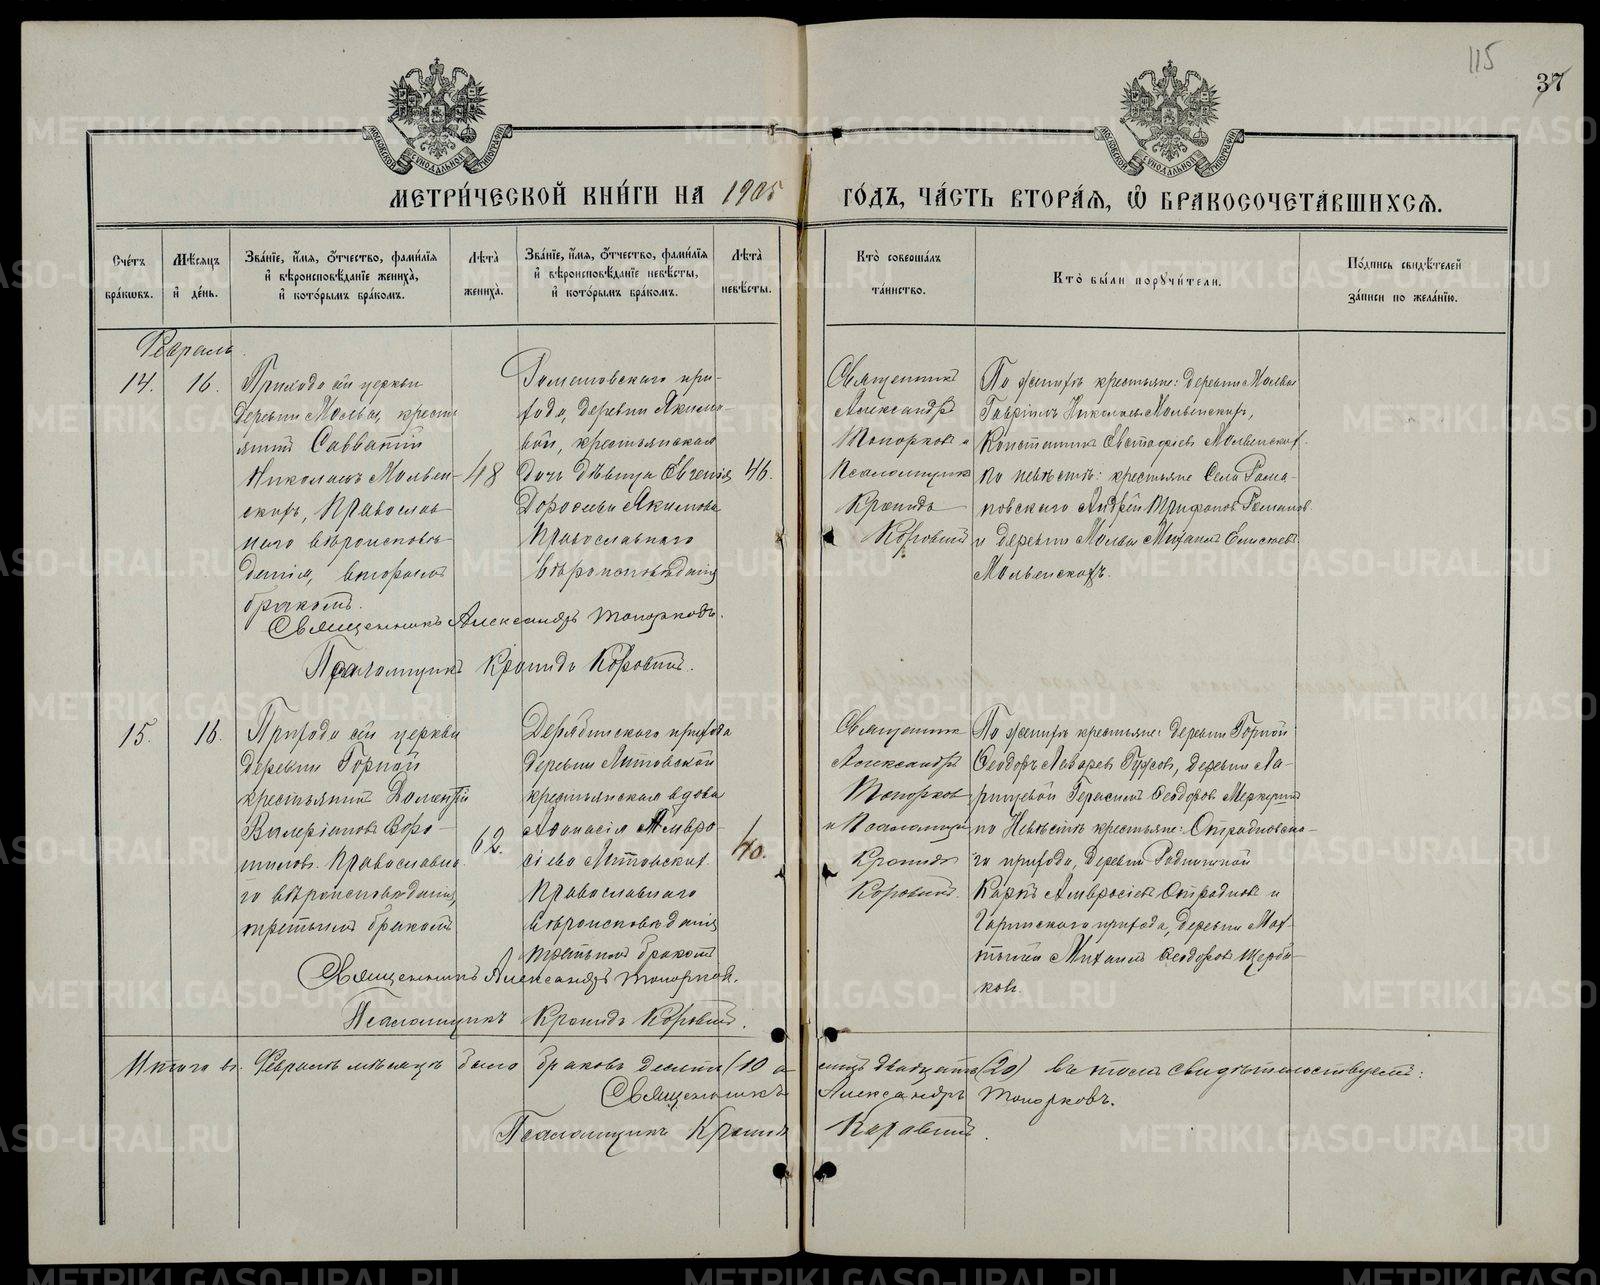 115
37
МОСКОВСКОЙ СѴНОДАЛЬНОЙ ТИПОГРАФІИ
МОСКОВСКОЙ СѴНОДАЛЬНОЙ ТИПОГРАФІИ
МЕТРИ́ЧЕСКОЙ КНИ́ГИ НА 1905 ГО́ДЪ, ЧА́СТЬ ВТОРА́Я, Ѡ҆ БРАКОСОЧЕТА́ВШИХСЯ.
Сче́тъ бра́кѡвъ.
Мѣ́сяцъ и҆ де́нь.
Зва́нїе, и҆́мя, ѻ҆́тчество, фами́лїя и҆ вѣроисповѣ́данїе жениха̀, и҆ кото́рымъ бра́комъ.
Лѣ́та жениха̀.
Зва́нїе, и҆́мя, ѻ҆́тчество, фами́лїя и҆ вѣроисповѣ́данїе невѣ́сты, и҆ кото́рымъ бра́комъ.
Лѣ́та невѣ́сты.
Кто̀ соверша́лъ та́инство.
Кто̀ бы́ли поручи́тели.
По́дпись свидѣ́телей за́писи по жела́нїю.
Февраль.
14.
16.
Прихода сей церкви
деревни Мальвы, кресть
янинъ Савватій
Николаевъ Мальвен-
скихъ, Православ
наго вѣроисповѣ
данія, вторымъ
бракомъ.
48
Романовскаго при-
хода, деревни Акимо-
вой, крестьянская
дочь дѣвица Евгенія
Дорофеева Акимова
Православнаго
вѣроисповѣданія
46.
Священникъ
Александръ
Топорковъ и
Псаломщикъ
Кронидъ
Коровинъ
По женихѣ крестьяне: деревни Мальвы
Гавріилъ Николаевъ Мальвенскихъ,
Константинъ Евстафіевъ Мальвенскихъ.
по невѣстѣ: крестьяне Села Рома-
новскаго Андрей Трифоновъ Романовъ
и деревни Мальвы Михаилъ Елисеевъ
Мальвенскихъ.
Священникъ Александръ Топорковъ.
Псаломщикъ Кронидъ Коровинъ.
15.
16.
Прихода сей церкви
деревни Горной
крестьянинъ
Валеріановъ Воро-
шиловъ. Православна
го вѣроисповѣданія,
третьимъ бракомъ
62.
Дерябинскаго прихода
деревни Литовской
крестьянская вдова
Афанасія Амвро-
сіева Литовскихъ
Православнаго
вѣроисповѣданія
третьимъ бракомъ
40.
Священникъ
Александръ
Топорковъ
и Псаломщикъ
Кронидъ
Коровинъ.
По женихѣ крестьяне: деревни Горной
Феодоръ Лазаревъ Гусевъ, деревни Ла-
ринцевой Герасимъ Феодоровъ Меркушинъ
по Невѣстѣ крестьяне: Отрадновска-
го прихода, деревни
Карпъ Амвросіевъ Отрадновъ и
прихода, деревни Мах-
тылей Михаилъ Феодоровъ Щерба-
ковъ.
Священникъ Александръ Топорковъ.
Псаломщикъ Кронидъ Коровинъ.
Итого въ Февралѣ мѣсяцѣ было браковъ десять (10 а лицъ двадцать (20) въ томъ свидѣтельствуемъ:
Священникъ Александръ Топорковъ.
Псаломщикъ Кронидъ Коровинъ.
METRIKI.GASO-URAL.RU